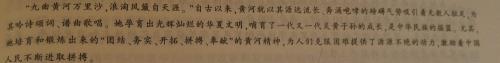 “九曲黄河万里沙，浪淘风簸自天涯。”自古以来，黄河就以其源远流长、奔涌咆哮的磅礴气势吸引着无数人驻足，为
其吟诗颂词、谱曲歌唱。她孕育出光辉灿烂的华夏文明，哺育了一代又一代炎黄子孙的成长，是中华民族的摇篮。尤其，
她培育和锻炼出来的“团结、务实、开拓、拼搏、奉献”的黄河精神，为人们克服困难提供了源源不绝的动力，激励着中国
人民不断进取拼搏。